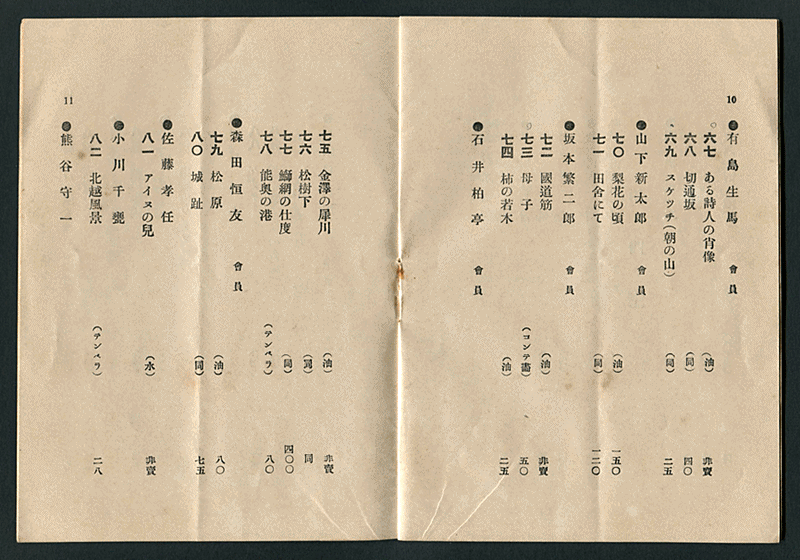 10
●有島生馬 會員
六七 ある詩人の肖像 (油) 非賣
六八 切通坂 (同) 四〇
六九 スケツチ(朝の山) (同) 二五
●山下新太郎 會員
七〇 梨花の頃 (油) 一五〇
七一 田舎にて (同) 一二〇
●坂本繁二郎 會員
七二 國道筋 (油) 非賣
七三 母子 (コンテ畵) 五〇
七四 柿の若木 (油) 二五
●石井柏亭 會員
七五 金澤の犀川 (油) 非賣
七六 松樹下 (同) 同
七七 鰤網の仕度 (同) 四〇〇
七八 能奥の港 (テンペラ) 八〇
●森田恒友 會員
七九 松原 (油) 八〇
八〇 城趾 (同) 七五
●佐藤孝任
八一 アイヌの兒 (水) 非賣
●小川千甕
八二 北越風景 (テンペラ) 二八
●熊谷守一
11